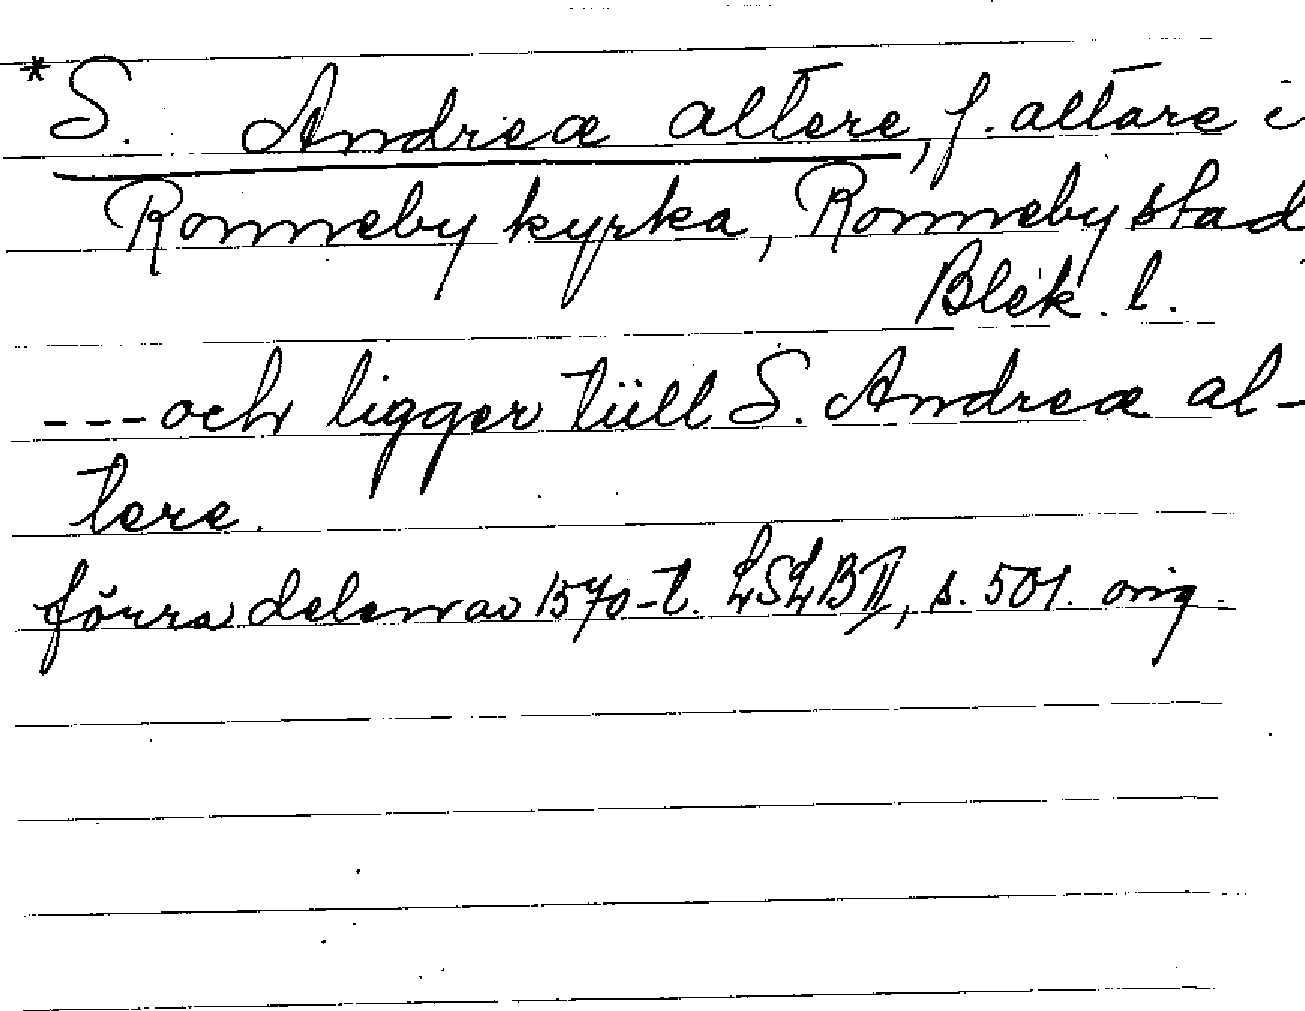 *S. Andreæ altere, f. altare i
Ronneby kyrka, Ronneby stad,
Blek. l.
---och ligger tüll S. Andreæ al-
tere.
förra delen av 1570-t. LSLB II, s. 501. orig.